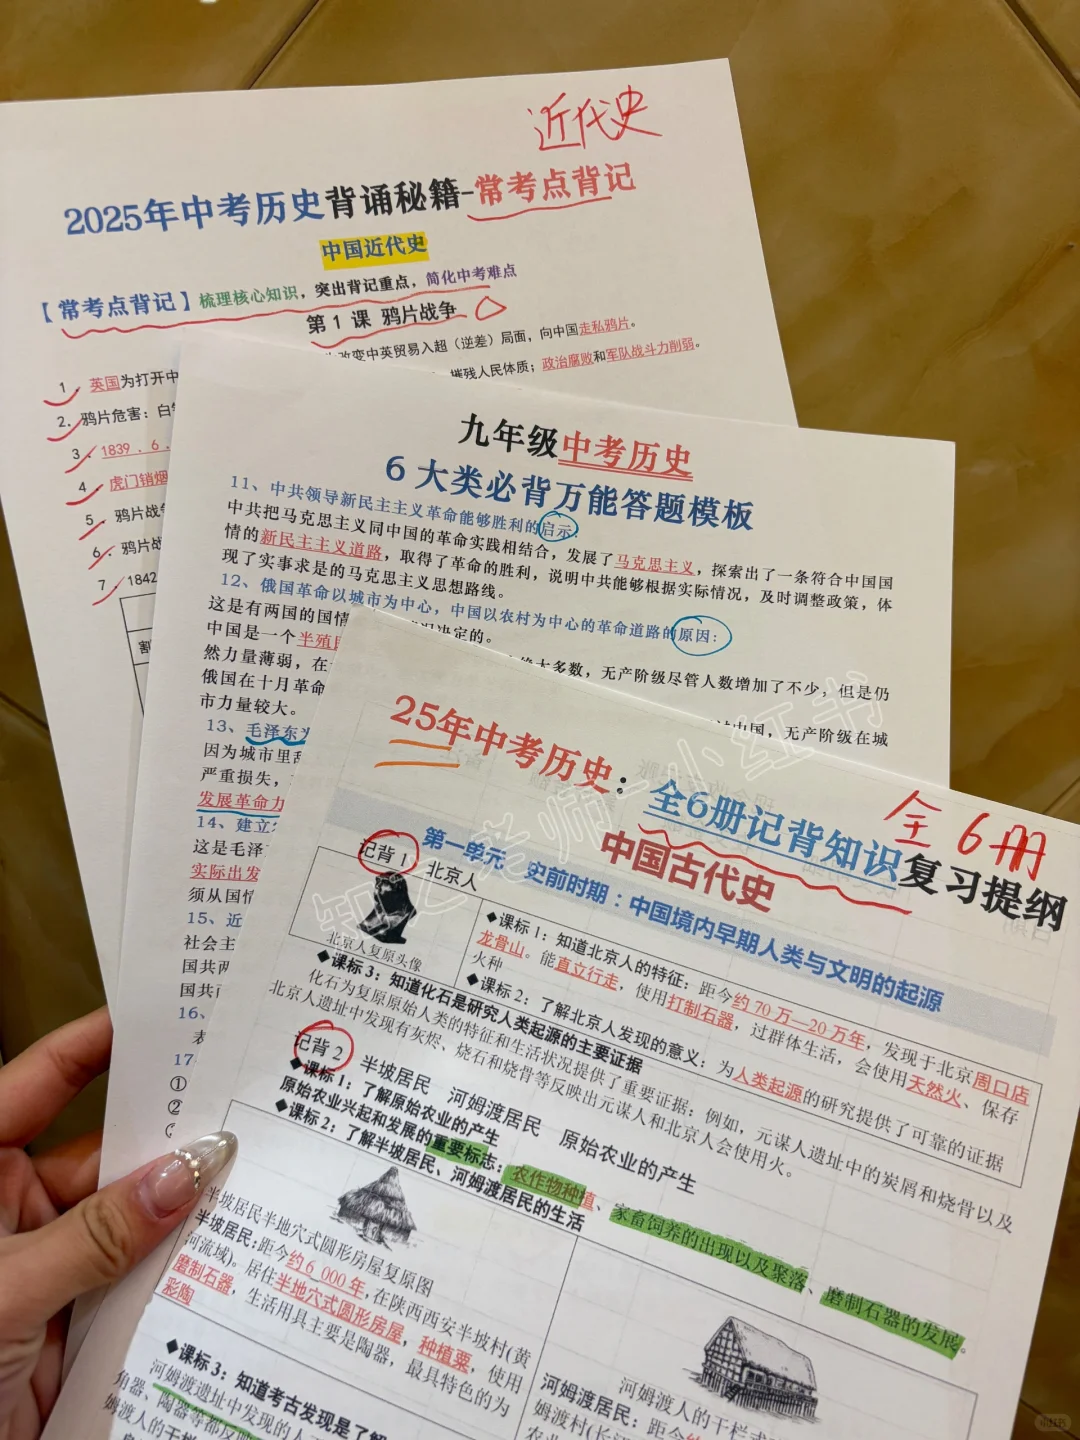 近代史
2025年中考历史背诵秘籍-常考点背记
中国近代史
【常考点背记】梳理核心知识，突出背记重点，简化中考难点
第1课 鸦片战争
1、英国为打开中
改变中英贸易入超（逆差）局面，向中国走私鸦片。
2、鸦片危害：白
摧残人民体质；政治腐败和军队战斗力削弱。
3、1839.6.
4、虎门销烟
5、鸦片战
6、鸦片战
7、1842
割
九年级中考历史
6大类必背万能答题模板
11、中共领导新民主主义革命能够胜利的启示：
中共把马克思主义同中国的革命实践相结合，发展了马克思主义，探索出了一条符合中国国
情的新民主主义道路，取得了革命的胜利，说明中共能够根据实际情况，及时调整政策，体
现了实事求是的马克思主义思想路线。
12、俄国革命以城市为中心，中国以农村为中心的革命道路的原因：
这是有两国的国情
决定的。
中国是一个半殖民
绝大多数，无产阶级尽管人数增加了不少，但是仍
然力量薄弱，在
中国，无产阶级在城
俄国在十月革命
市力量较大。
13、毛泽东
因为城市里
严重损失，
发展革命力
14、建立
这是毛泽
实际出发
须从国情
15、近
社会主
国共两
国共
16、
17
①
②
25年中考历史：全6册记背知识复习提纲
全6册
中国古代史
第一单元 史前时期：中国境内早期人类与文明的起源
记背1
北京人
北京人复原头像
◆课标1：知道北京人的特征：距今约70万—20万年，发现于北京周口店
龙骨山。能直立行走，使用打制石器，过群体生活，会使用天然火、保存
火种
◆课标2：了解北京人发现的意义：为人类起源的研究提供了可靠的证据
◆课标3：知道化石是研究人类起源的主要证据
化石为复原原始人类的特征和生活状况提供了重要证据；例如，元谋人遗址中的炭屑和烧骨以及
北京人遗址中发现有灰烬、烧石和烧骨等反映出元谋人和北京人会使用火。
记背2
半坡居民 河姆渡居民 原始农业的产生
◆课标1：了解原始农业的产生
原始农业兴起和发展的重要标志：农作物种植、家畜饲养的出现以及聚落、磨制石器的发展。
◆课标2：了解半坡居民、河姆渡居民的生活
半坡居民半地穴式圆形房屋复原图
半坡居民：距今约6 000年，在陕西西安半坡村(黄
河流域)。居住半地穴式圆形房屋，种植粟，使用
磨制石器，生活用具主要是陶罐，最具特色的为
彩陶
河姆渡人的干栏式
河姆渡居民：距今约
姆渡村(长江
农业
◆课标3：知道考古发现是了解
河姆渡遗址中发现的
角器、陶器等都反映
姆渡人的干栏
知了老师 小红书
小红书